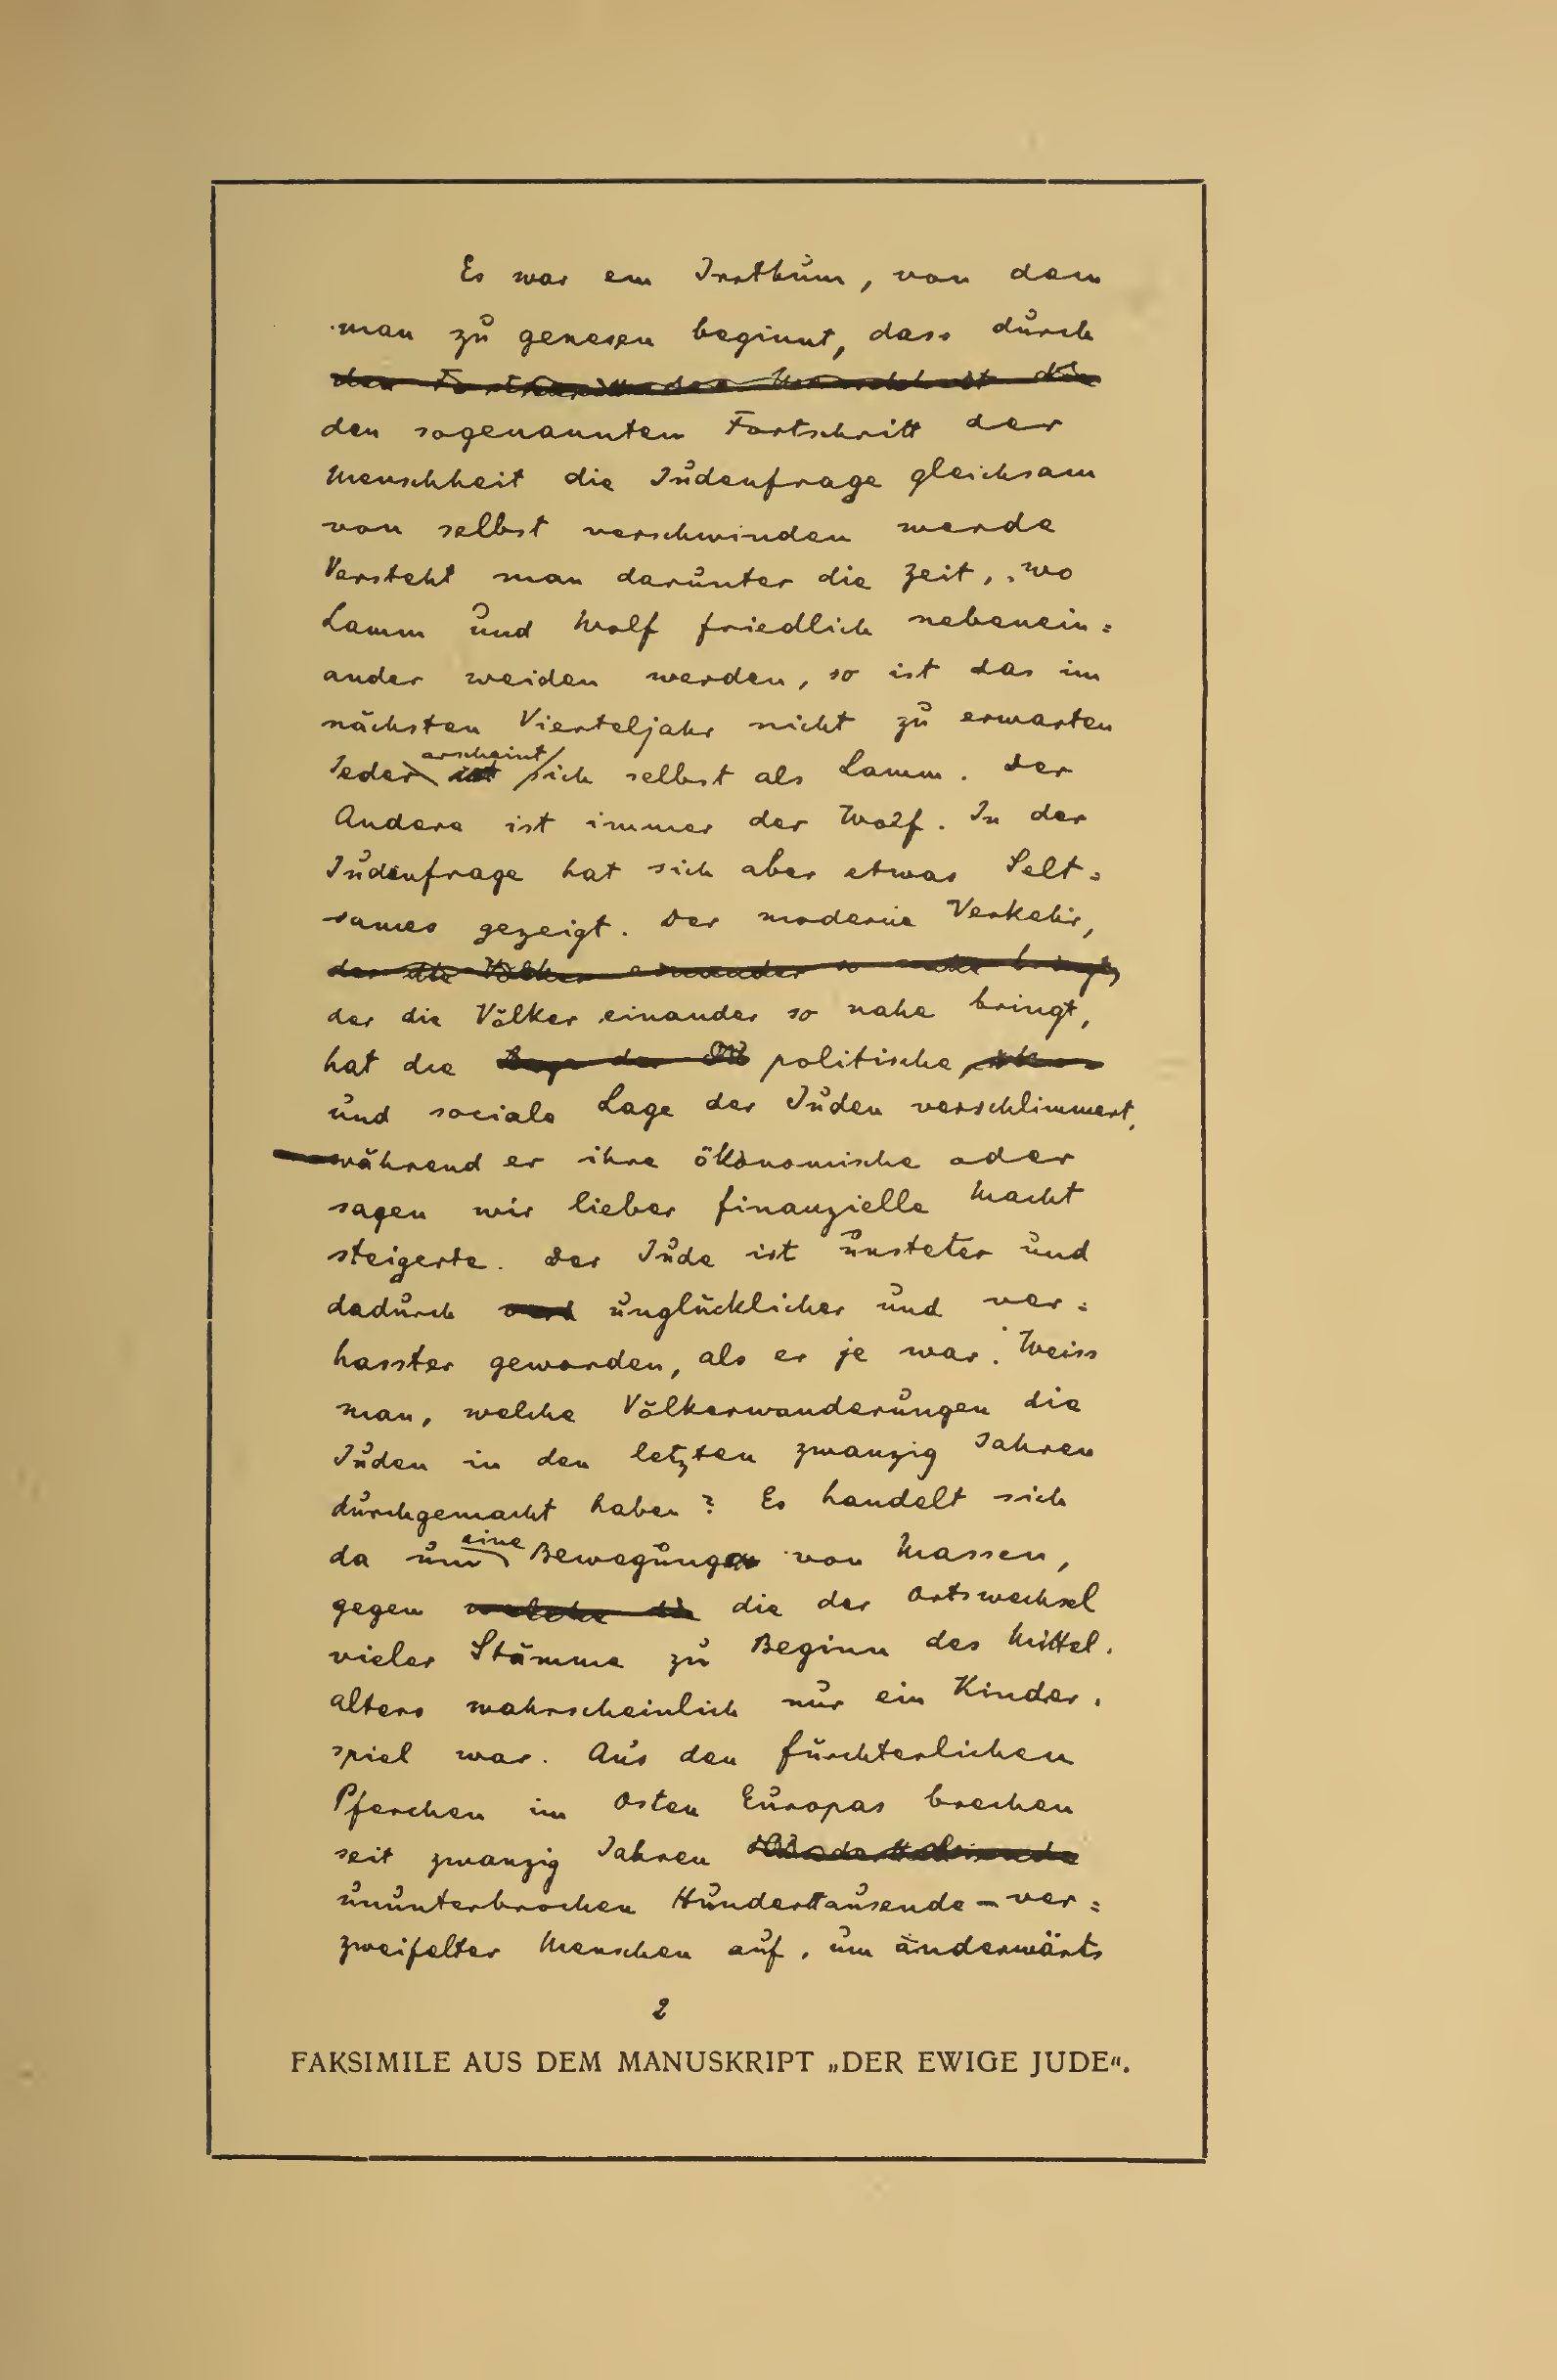 Es war ein Irrthum, von dem
man zu genesen beginnt, dass durch
den Fortschritt der Menschheit die
den sogenannten Fortschritt der
Menschheit die Judenfrage gleichsam
von selbst verschwinden werde
Versteht man darunter die Zeit, wo
Lamm und Wolf friedlich nebenein=
ander weiden werden, so ist das im
nächsten Vierteljahr nicht zu erwarten
erscheint
Jeder ist sich selbst als Lamm. Der
Andere ist immer der Wolf. In der
Judenfrage hat sich aber etwas Selt=
sames gezeigt. Der moderne Verkehr,
der die Völker einander so nahe bringt,
der die Völker einander so nahe bringt,
hat die Lage der politische,
und sociale Lage der Juden verschlimmert,
während er ihre ökonomische oder
sagen wir lieber finanzielle Macht
steigerte. Der Jude ist unsteter und
dadurch unglücklicher und ver=
hasster geworden, als er je war. Weiss
man, welche Völkerwanderungen die
Juden in den letzten zwanzig Jahren
durchgemacht haben? Es handelt sich
eine
da um Bewegung von Massen,
gegen welche die die der Ortswechsel
vieler Stämme zu Beginn des Mittel.
alters wahrscheinlich nur ein Kinder.
spiel war. Aus den fürchterlichen
Pferchen im Osten Europas brechen
seit zwanzig Jahren
ununterbrochen Hunderttausende - ver=
zweifelter Menschen auf, um anderwärts
2
FAKSIMILE AUS DEM MANUSKRIPT „DER EWIGE JUDE“.